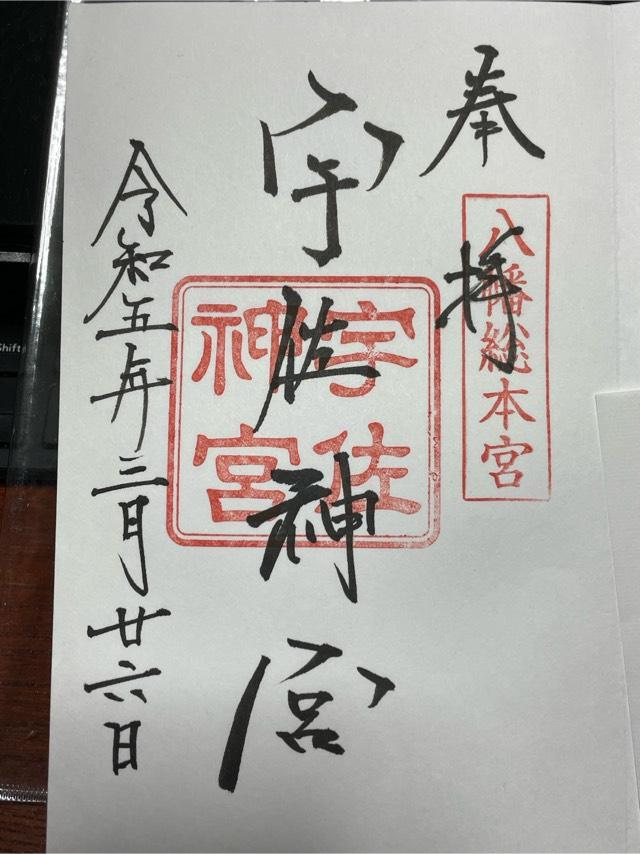 奉拝
八幡総本宮
宇佐神宮
宇佐
神宮
令和五年三月廿六日
Shift